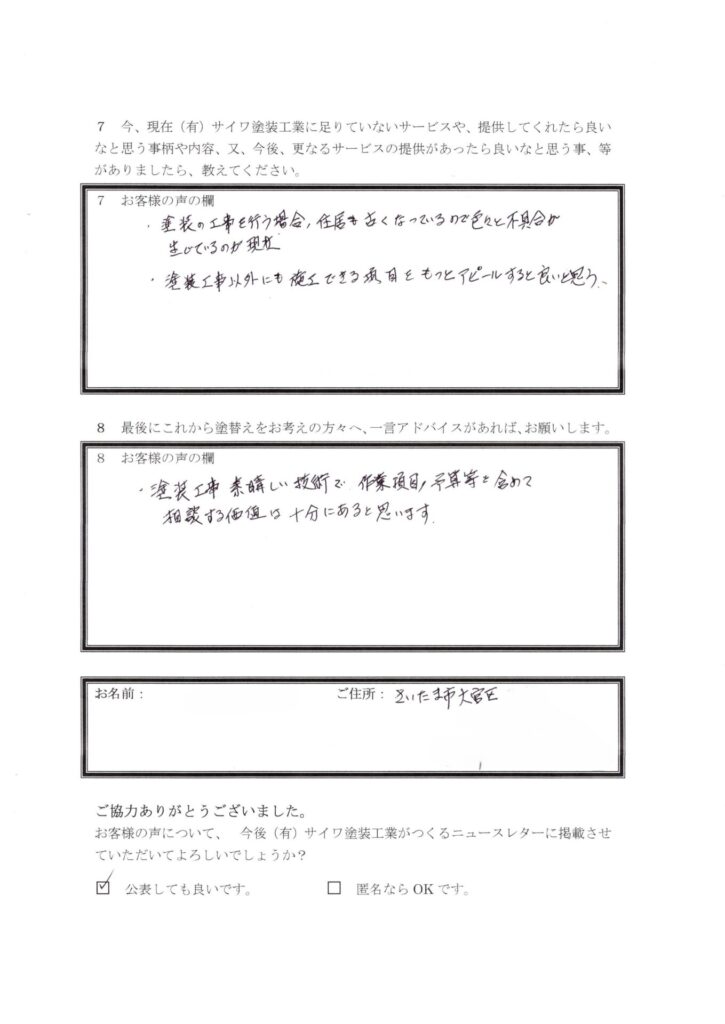 7 今、現在（有）サイワ塗装工業に足りていないサービスや、提供してくれたら良い
なと思う事柄や内容、又、今後、更なるサービスの提供があったら良いなと思う事、等
がありましたら、教えてください。
7 お客様の声の欄
・塗装の工事を行う場合，住居も古くなっているので色々と不具合が
生じているのが現状
・塗装工事以外にも施工できる項目をもっとアピールすると良いと思う、
8 最後にこれから塗替えをお考えの方々へ、一言アドバイスがあれば、お願いします。
8 お客様の声の欄
・塗装工事 素晴しい技術で 作業項目，予算等を含めて
相談する価値は十分にあると思います.
お名前： ご住所： さいたま市大宮区
ご協力ありがとうございました。
お客様の声について、 今後（有）サイワ塗装工業がつくるニュースレターに掲載させ
ていただいてよろしいでしょうか？
☑ 公表しても良いです。 □ 匿名なら OK です。